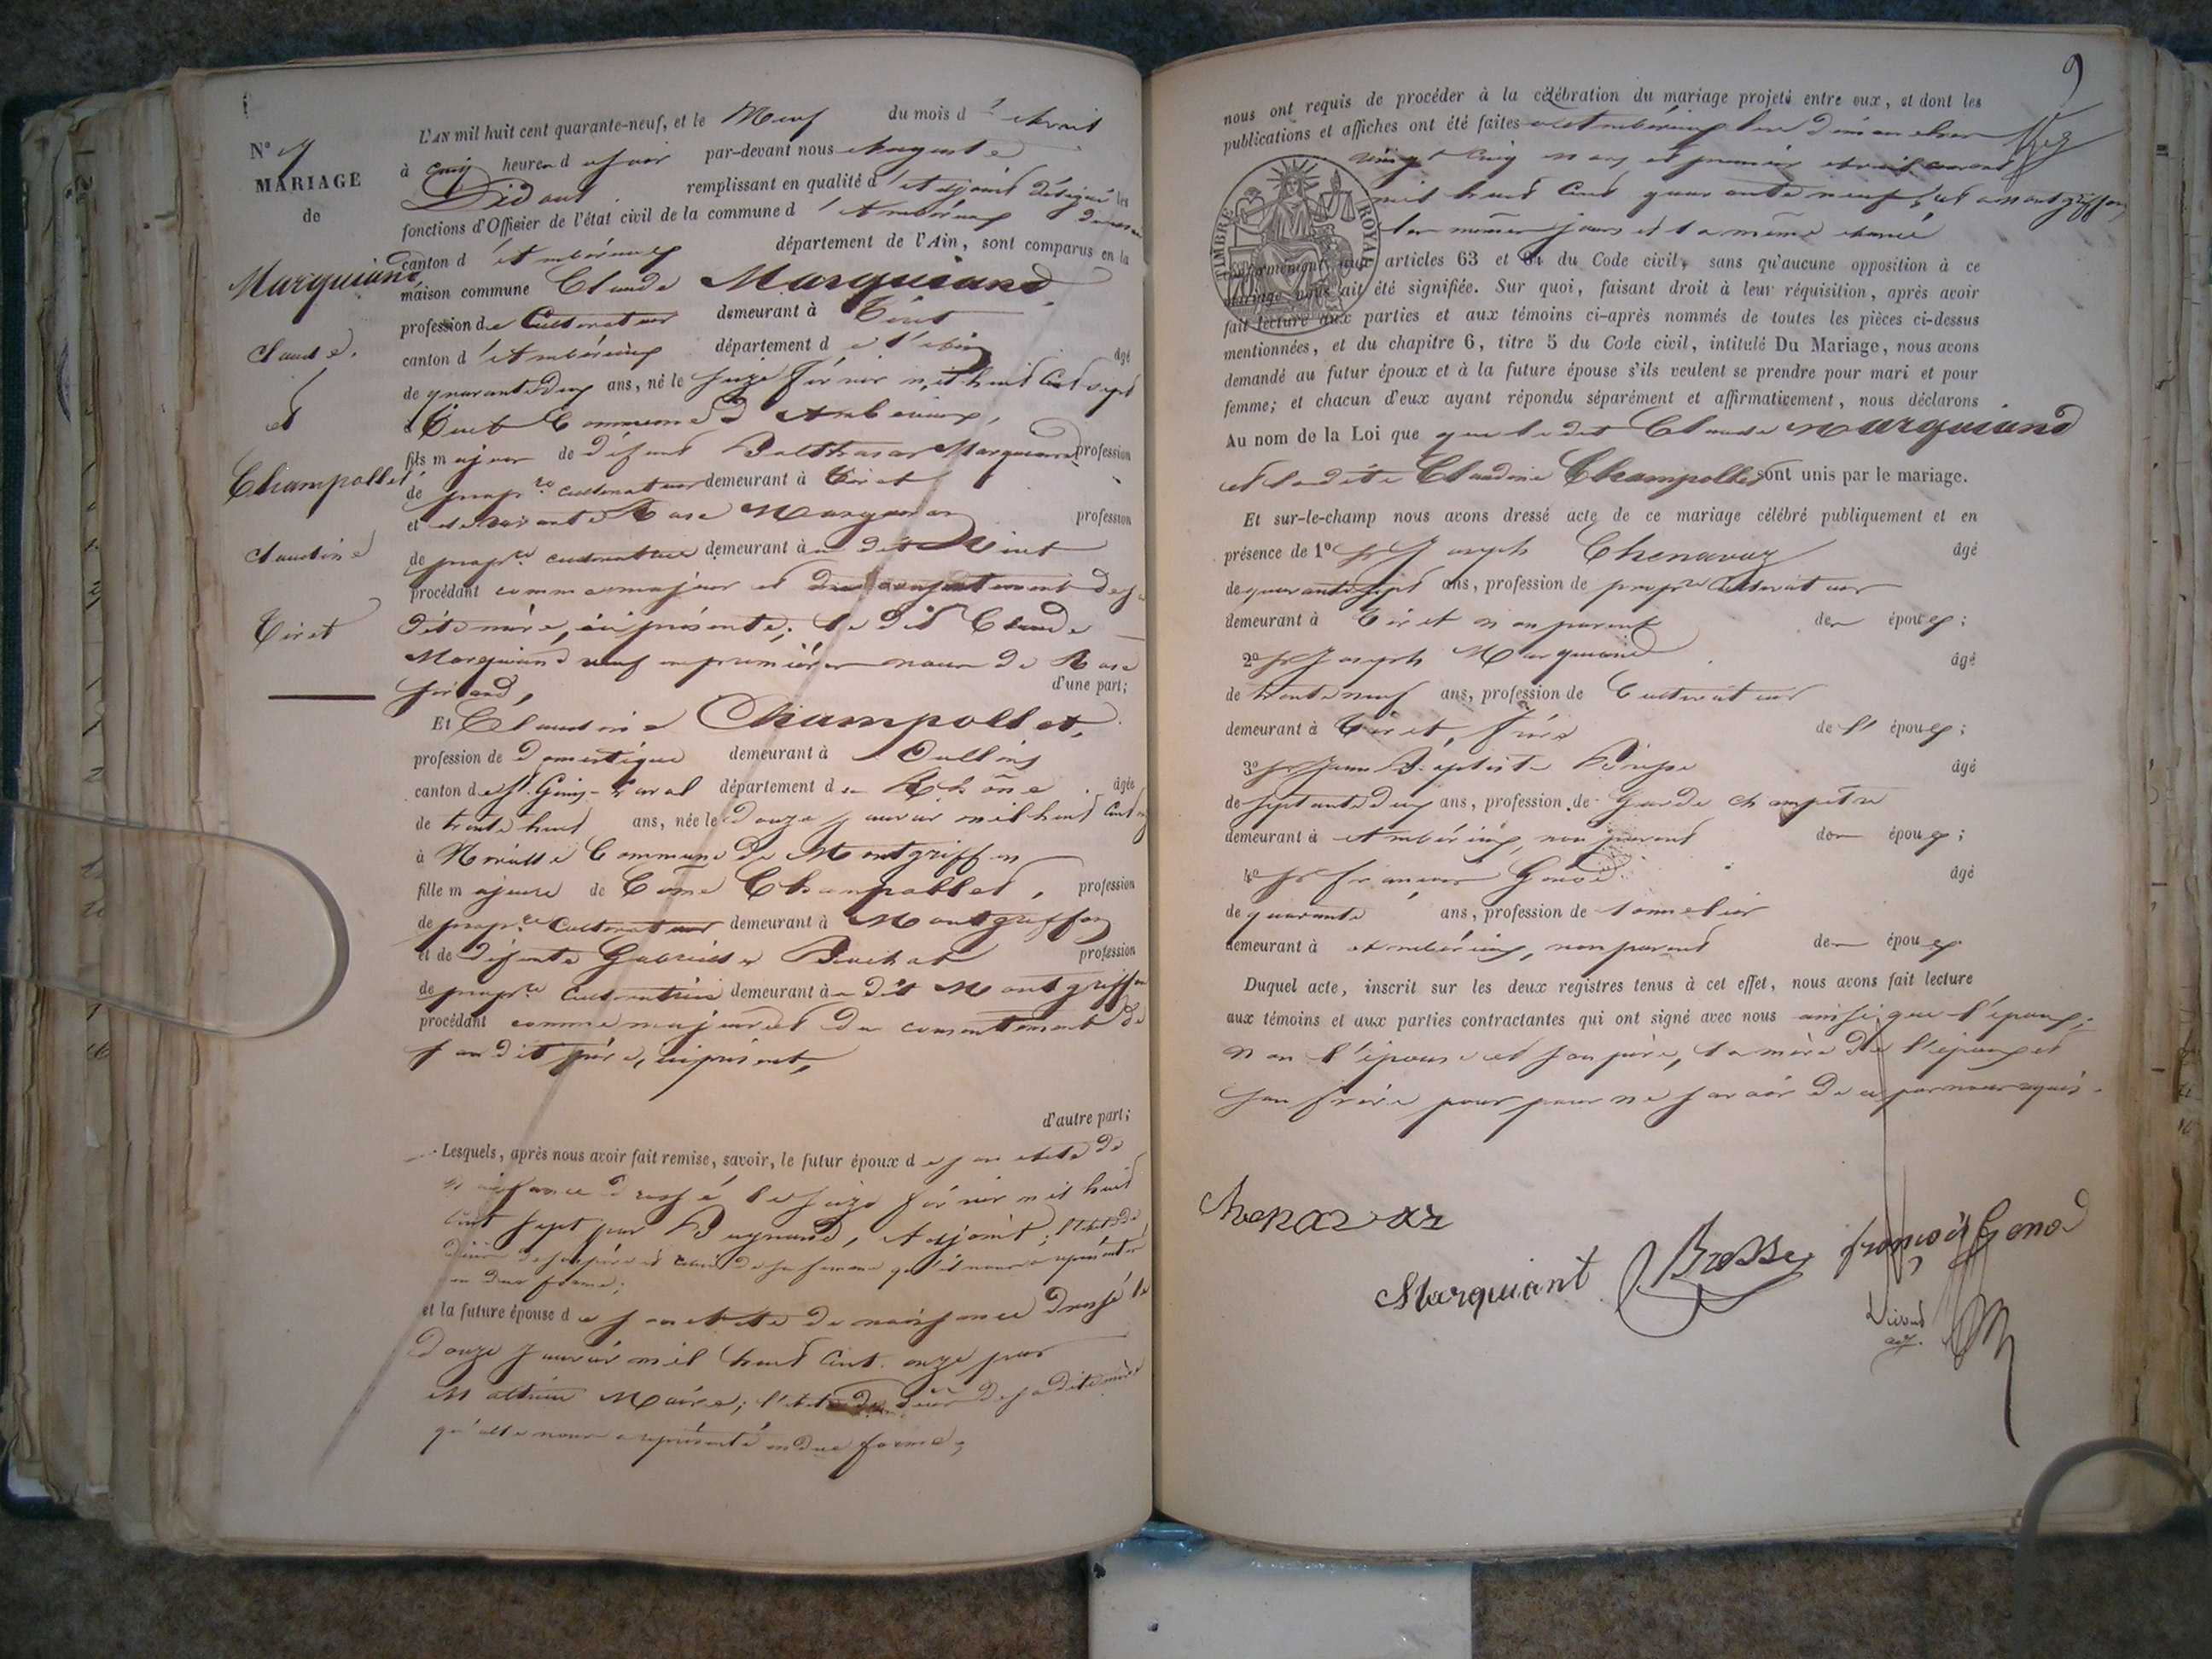 N° 9
MARIAGE
de
Marquiand,
Claude.
et
Champollet
Claudine
Tiret
L'AN mil huit cent quarante-neuf, et le Neuf du mois d'Avril
à cinq heures du soir par-devant nous Auguste
remplissant en qualité d'adjoint délégué les
fonctions d'Officier de l'état civil de la commune d'Ambérieux
canton d'Ambérieux département de l'Ain, sont comparus en la
maison commune Claude Marquiand,
profession de Cultivateur demeurant à Tiret
canton d'Ambérieux département de l'Ain âgé
de quarante deux ans, né le seize février mil huit cent sept
à Tiret Commune d'Ambérieux,
fils majeur de défunt Balthazar Marquiand profession
de propre cultivateur demeurant à Tiret
et de vivante Rose profession
de propre cultivatrice demeurant au dit Tiret
procédant comme majeur et du consentement de sa
dite mère, ici présente; le dit Claude
Marquiand veuf en premières noces de Rose
d'une part;
Et Claudine Champollet,
profession de Domestique demeurant à Oullins
canton de St. Genis-Laval département du Rhône âgée
de trente huit ans, née le douze janvier mil huit cent
à Commune de Montgriffon
fille majeure de Côme Champollet, profession
de propre cultivateur demeurant à Montgriffon
et de défunte Gabrielle profession
de propre cultivatrice demeurant au dit Montgriffon
procédant comme majeure et du consentement de
son dit père, ici présent,
d'autre part;
Lesquels, après nous avoir fait remise, savoir, le futur époux de son acte de
naissance dressé le seize février mil huit
cent sept par adjoint; l'acte de
décès de son père et celui de sa femme qu'il nous a représentés
en due forme;
et la future épouse de son acte de naissance dressé le
douze janvier mil huit cent onze par
Maire; l'acte de décès de sa dite mère
qu'elle nous a représenté en due forme;
9
nous ont requis de procéder à la célébration du mariage projeté entre eux, et dont les
publications et affiches ont été faites à Ambérieux les dimanches
vingt cinq mars et premier avril courant
mil huit cent quarante neuf, et à Montgriffon
les mêmes jours et la même année
TIMBRE ROYAL
conformément aux articles 63 et 64 du Code civil, sans qu'aucune opposition à ce
mariage nous ait été signifiée. Sur quoi, faisant droit à leur réquisition, après avoir
fait lecture aux parties et aux témoins ci-après nommés de toutes les pièces ci-dessus
mentionnées, et du chapitre 6, titre 5 du Code civil, intitulé Du Mariage, nous avons
demandé au futur époux et à la future épouse s'ils veulent se prendre pour mari et pour
femme; et chacun d'eux ayant répondu séparément et affirmativement, nous déclarons
Au nom de la Loi que que le dit Claude Marquiand
et la dite Claudine Champollet sont unis par le mariage.
Et sur-le-champ nous avons dressé acte de ce mariage célébré publiquement et en
présence de 1° Sr Joseph Chenavaz âgé
de quarante sept ans, profession de propre cultivateur
demeurant à Tiret non parent des époux;
2° Sr Joseph Marquiand âgé
de trente neuf ans, profession de Cultivateur
demeurant à Tiret, frère de l'époux;
3° Sr Jean Baptiste âgé
de septante deux ans, profession de Garde champêtre
demeurant à Ambérieux, non parent des époux;
4° Sr François Genod âgé
de quarante ans, profession de tonnelier
demeurant à Ambérieux, non parent des époux.
Duquel acte, inscrit sur les deux registres tenus à cet effet, nous avons fait lecture
aux témoins et aux parties contractantes qui ont signé avec nous ainsi que l'époux;
non l'épouse et son père, la mère de l'époux et
son frère pour ne savoir de ce par nous requis.
Chenavaz
Marquiant
françois Genod